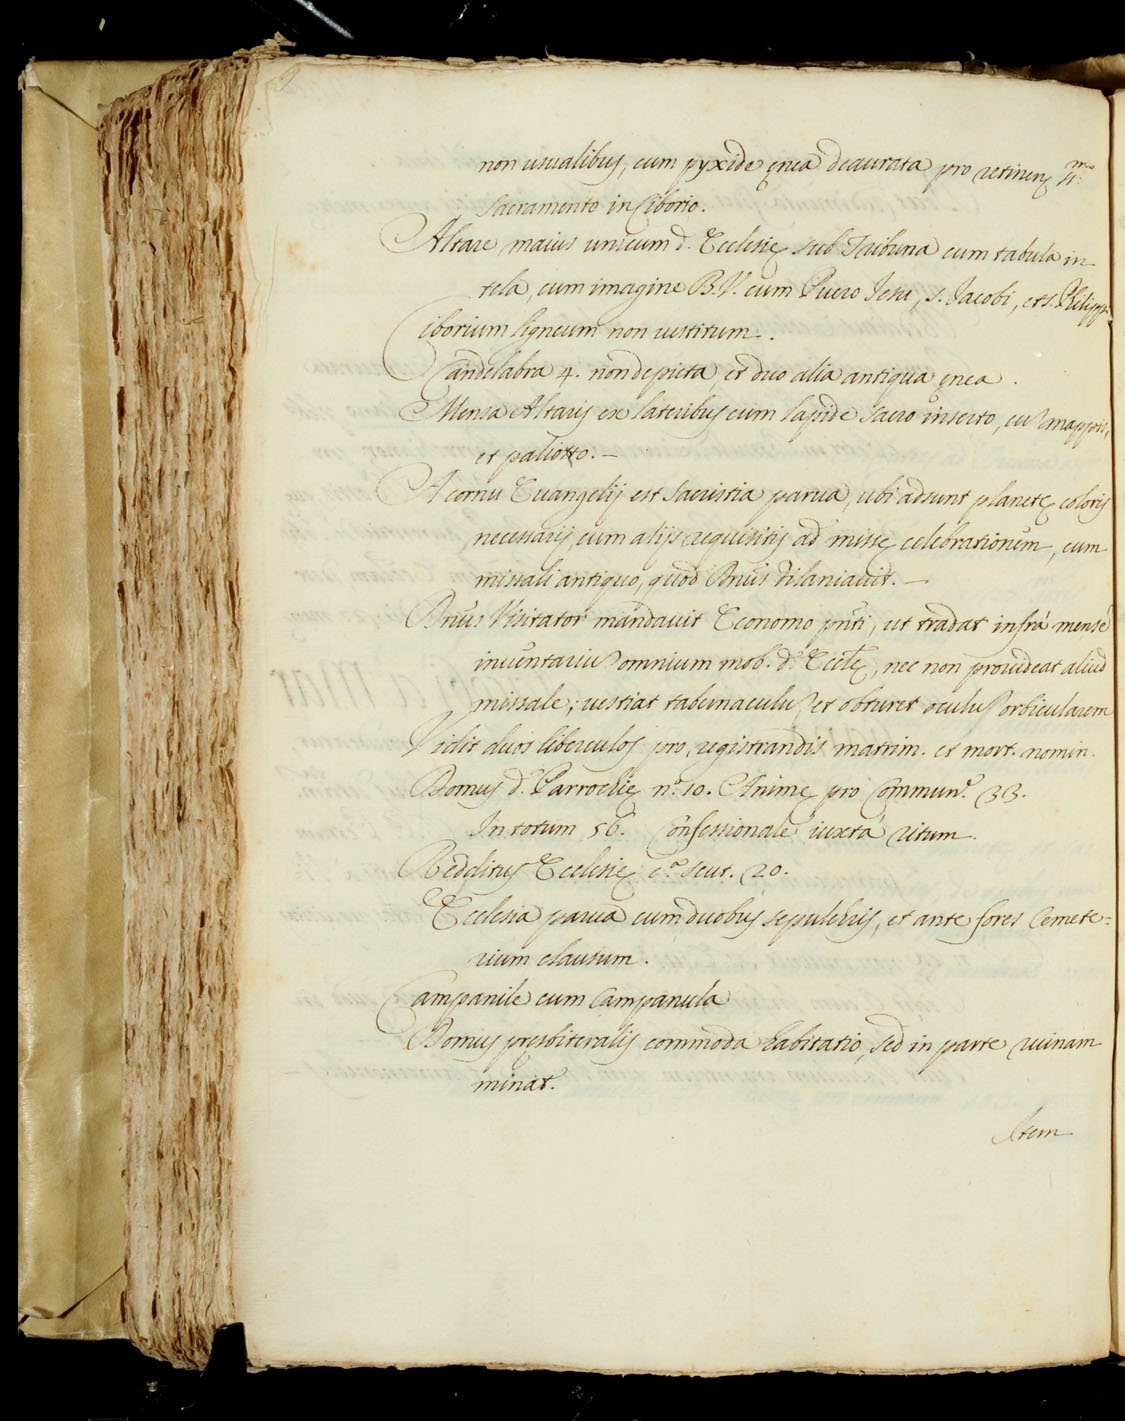 non usualibus, cum pyxide ęnea deaurata pro retinen. SS.mo
Sacramento in Ciborio.
Altare maius unicum d. Ecclesię sub Tribuna cum tabula in
tela, cum imagine B.V. cum Puero Jesu, s. Jacobi, et s. Philippi
Ciborium ligneum non vestitum.
Candelabra 4. non depicta, et duo alia antiqua ęnea.
Mensa Altaris ex lateribus cum lapide sacro inserto, cū mappis,
et paliotto. –
A cornu Evangelij est sacristia parva, ubi adsunt planetę coloris
necessarij, cum alijs requisitis ad missę celebrationem, cum
missali antiquo, quod Dnus dilaniavit. –
Dnus Visitator mandavit Economo pnti, ut tradat infrà mensē
inventariū omnium mob. d. Eccłę, nec non provideat aliud
missale; vestiat tabernaculū, et obturet oculū orbicularem
Vidit duos liberculos pro registrandis matrim. et mort. nomin.
Domus d. Parrochię n.o 10. Animę pro Commun.e 33.
In totum 56. Confessionale iuxta ritum
Redditus Ecclesię c.a scut. 20.
Ecclesia parva cum duobus sepulchris, et ante fores Cemete=
rium clausum.
Campanile cum Campanula
Domus pręsbiteralis commoda habitatio, sed in parte ruinam
minat.
Item